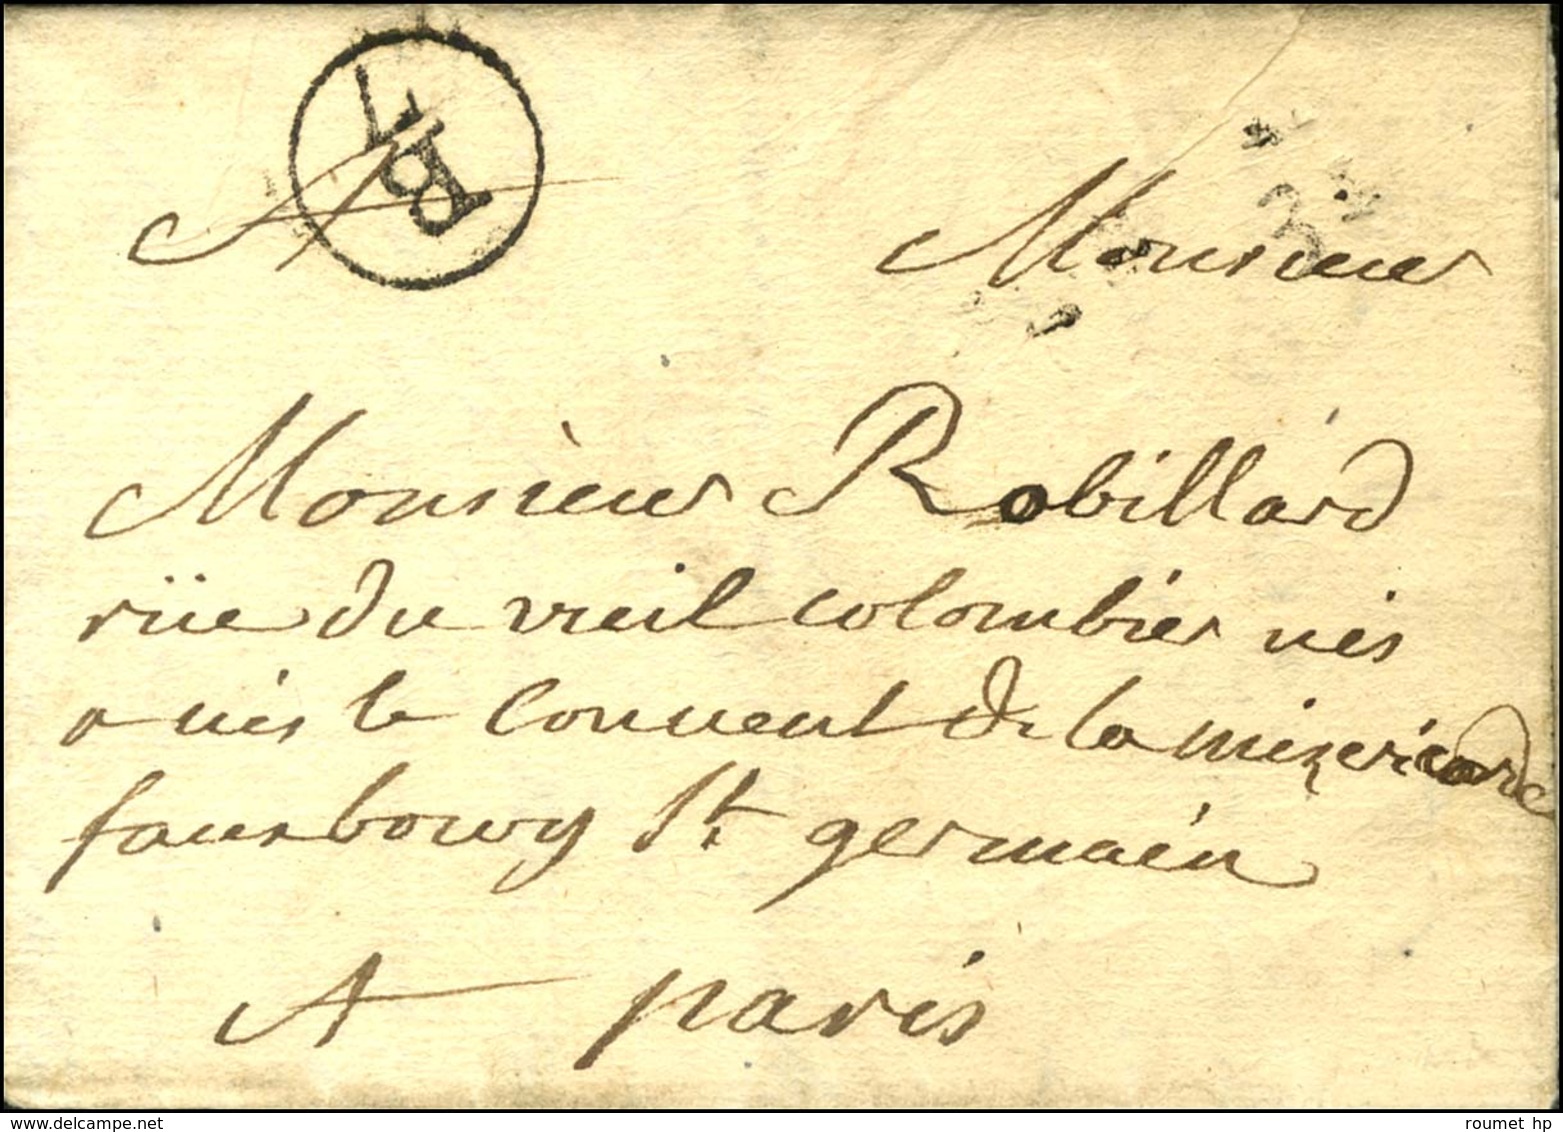 A Monsieur
Monsieur Robillard
rüe du vieil colombier vis
a vis le Couvent de la mizericorde
fauxbourg St germain
A paris
delcampe.net
roumet hp